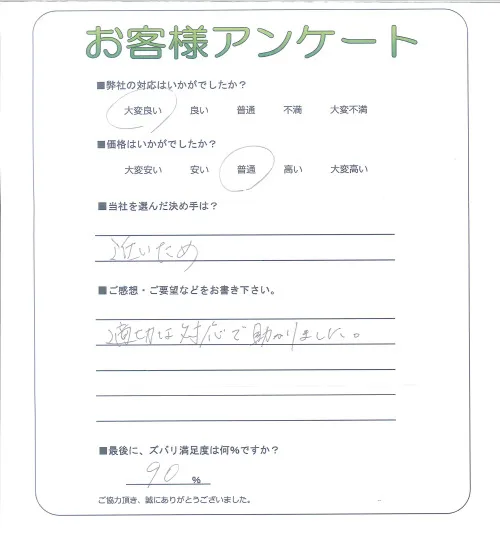 お客様アンケート
■弊社の対応はいかがでしたか？
大変良い 良い 普通 不満 大変不満
■価格はいかがでしたか？
大変安い 安い 普通 高い 大変高い
■当社を選んだ決め手は？
近いため
■ご感想・ご要望などをお書き下さい。
適切な対応で助かりました。
■最後に、ズバリ満足度は何%ですか？
90 %
ご協力頂き、誠にありがとうございました。